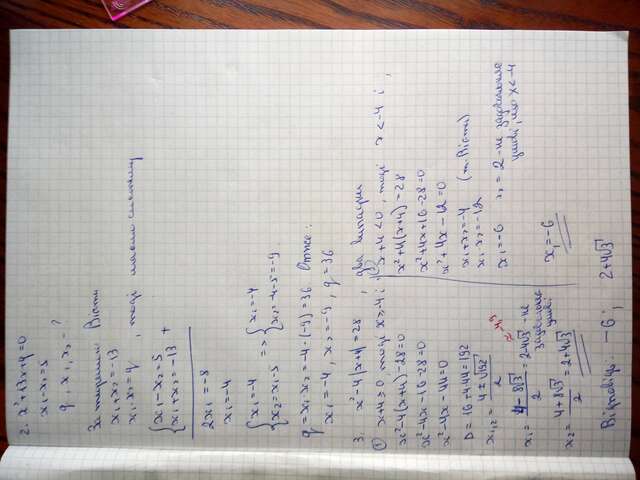 2. x²+13x+q=0
x₁-x₂=5
q, x₁, x₂ - ?
За теоремою Вієта
x₁+x₂=-13
x₁·x₂=q, тоді маємо систему
{x₁-x₂=5
{x₁+x₂=-13 +
2x₁=-8
x₁=-4
{x₁=-4
{x₂=x₁-5 => {x₁=-4
{x₂=-4-5=-9
q=x₁·x₂=-4·(-9)=36 Отже:
x₁=-4, x₂=-9, q=36
3. x²-4|x+4|=28, два випадки
① x+4≥0 тоді x≥-4 і
x²-4(x+4)-28=0
x²-4x-16-28=0
x²-4x-44=0
D=16+4·44=192
x₁,₂= (4±√192)/2
x₁= (4-8√3)/2 =2-4√3 - не задовольняє умові
≈-4,9
x₂= (4+8√3)/2 =2+4√3
② x+4<0, тоді x<-4 і
x²+4(x+4)=28
x²+4x+16-28=0
x²+4x-12=0
x₁+x₂=-4
x₁·x₂=-12 (т. Вієта)
x₁=-6 x₂=2 - не задовольняє умові, що x<-4
x₁=-6
Відповідь: -6; 2+4√3